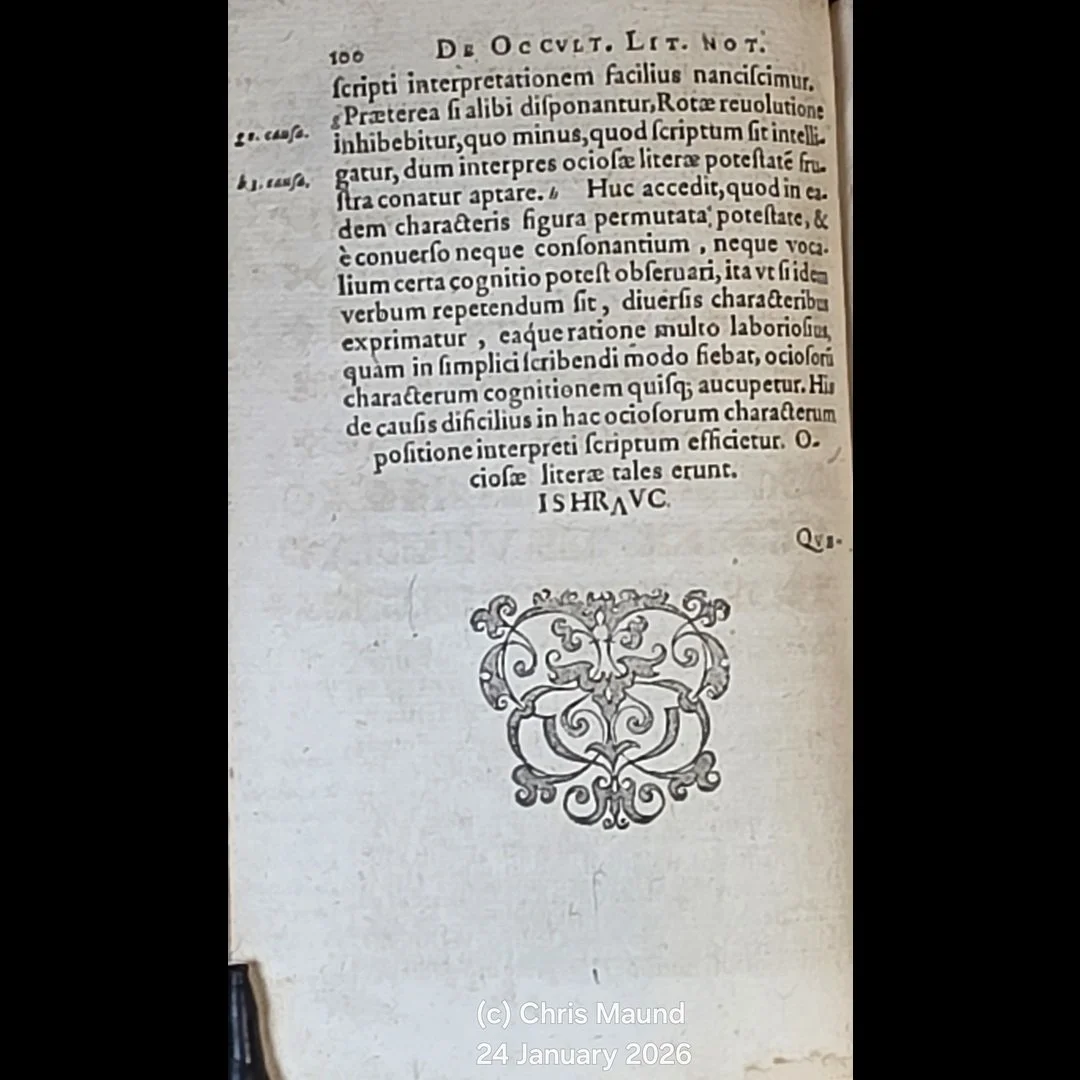 100 DE OCCVLT. LIT. NOT.
ſcripti interpretationem facilius nanciſcimur.
g Præterea ſi alibi diſponantur, Rotæ reuolutione
g 2. cauſa.
inhibebitur, quo minus, quod ſcriptum ſit intelli-
gatur, dum interpres ocioſæ literæ poteſtatē fru-
h 3. cauſa.
ſtra conatur aptare. h Huc accedit, quod in ea-
dem characteris figura permutata poteſtate, &
è conuerſo neque conſonantium, neque voca-
lium certa cognitio poteſt obſeruari, ita vt ſi idem
verbum repetendum ſit, diuerſis characteribus
exprimatur, eaque ratione multo laborioſius,
quàm in ſimplici ſcribendi modo fiebat, ocioſorū
characterum cognitionem quiſq; aucupetur. His
de cauſis dificilius in hac ocioſorum characterum
poſitione interpreti ſcriptum efficietur. O-
cioſæ literæ tales erunt.
ISHRΛVC.
QVI-
(c) Chris Maund
24 January 2026